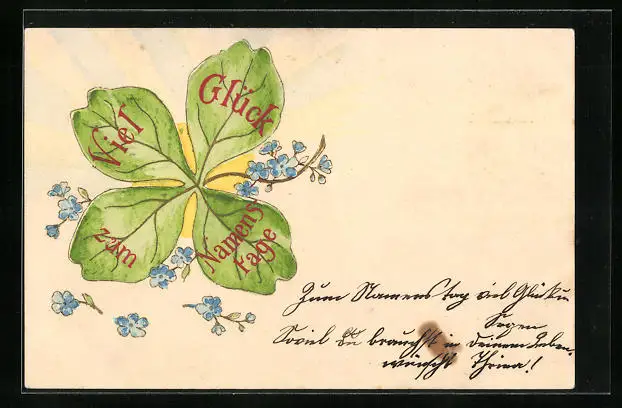 Viel
Glück
zum
Namens-
tage
Zum Namenstag viel Glück u
Segen
Soviel du brauchst in deinem Leben.
wünscht